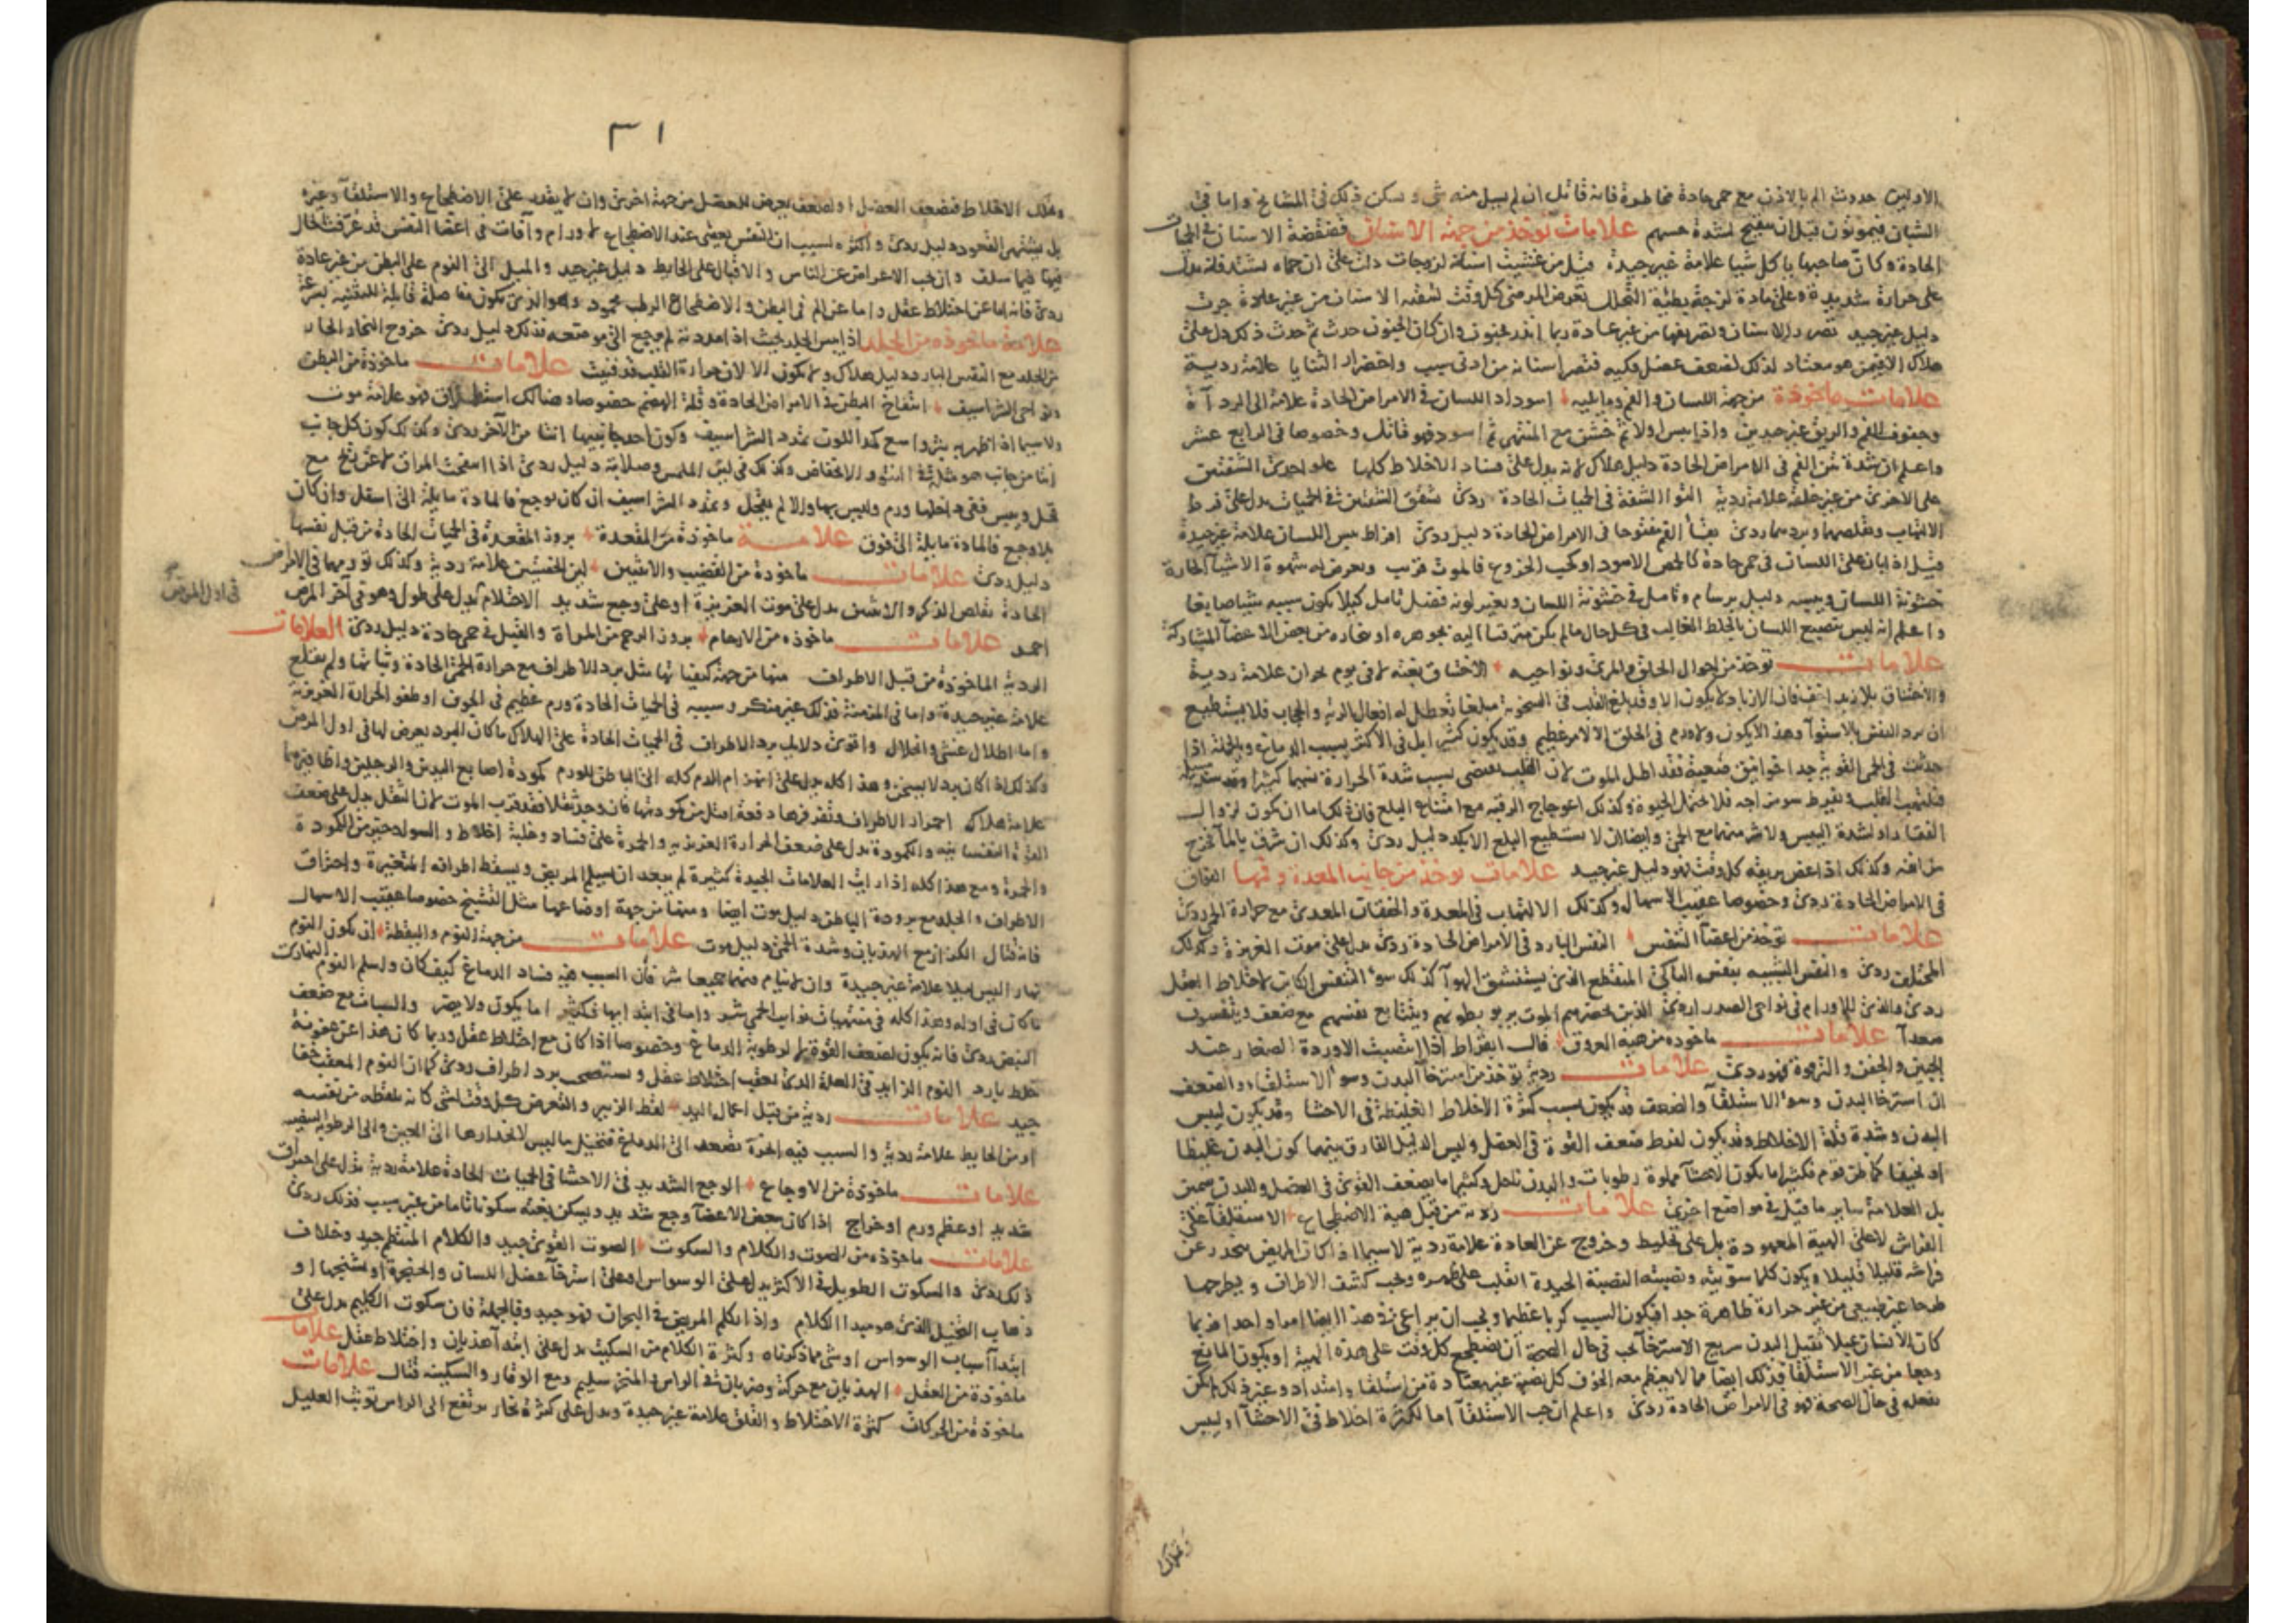 الاولين حدوث الم بالاذن مع حمى حادة مخاطرة فانه قاتل ان لم يسل منه شى ويسكن ذلك فى المشايخ واما فى
الشبان فيموتون قبل ان ينفتح لشدة حسهم علامات توخذ من جهة الاسنان قضقضة الاسنان فى الحميات
الحادة وكان صاحبها ياكل شيا علامة غير جيدة قيل من غشيت اسنانه لزوجات دلت على ان حماه تشتد فانه يدل
على حرارة شديدة وعلى مادة لزجة بطيئة التحلل تعرض المرضى كل وقت لنقية الاسنان من غير عادة جرت
دليل غير جيد تصرير الاسنان وتصريفها من غير عادة ربما انذر بجنون وان كان الجنون حدث ثم حدث ذلك دل على
هلاك الا فيمن هو معتاد لذلك لضعف عضل فكيه فتصر اسنانه من ادنى سبب واخضرار الثنايا علامة ردية
علامات ماخوذة من جهة اللسان والفم وما يليه اسوداد اللسان فى الامراض الحادة علامة الى الرداة
وجفوف الفم والريق غير جيدين واذا يبس اولا ثم خشن مع المنتهى ثم اسود فهو قاتل وخصوصا فى الرابع عشر
واعلم ان شدة نتن الفم فى الامراض الحادة دليل هلاك لانه يدل على فساد الاخلاط كلها علو احدى الشفتين
على الاخرى من غير خلقة علامة ردية التوا الشفة فى الحميات الحادة ردى شقق الشفتين فى الحميات يدل على فرط
الالتهاب وتقلصهما وبردهما ردى بقا الفم مفتوحا فى الامراض الحادة دليل ردى افراط يبس اللسان علامة غير جيدة
قيل اذا بان على اللسان فى حمى حادة كالحمص الاسود او كحب الخروع فالموت قريب ويعرض له شهوة الاشيا الحارة
خشونة اللسان ويبسه دليل برسام وتامل فى خشونة اللسان وتغير لونه فضل تامل كيلا يكون سببه شيا صابغا
واعلم انه ليس يصبغ اللسان بالخلط الغالب فى كل حال ما لم يكن مترقيا اليه بجوهره او بخاره من بعض الاعضا المشاركة
علامات توخذ من احوال الحلق والمرى ونواحيه الاختناق بغتة لا فى يوم بحران علامة ردية
والاختناق بلا زبد اخف فان الازباد لا يكون الا وقد بلغ القلب فى السخونة مبلغا تعطل له افعال الرئة والحجاب فلا يستطيع
ان يرد النفس بالاستوا وهذا لا يكون ولا ورم فى الحلق الا لامر عظيم وقد يكون كثير ايل فى الاكثر بسبب الدماغ وبالجملة اذا
حدثت فى الحمى القوية جدا خوانيق صعبة فقد اطل الموت لان القلب يقتضى بسبب شدة الحرارة نسيما كثيرا وقد سد سبيله
فيلتهب القلب ويفرط سو مزاجه فلا يحتمل الحيوة وكذلك اعوجاج الرقبة مع امتناع البلع فان ذلك اما ان يكون لزوال
الفقار او لشدة اليبس ولا شر منهما مع الحمى وايضا ان لا يستطيع البلع الا بكد دليل ردى وكذلك ان شرق بالما فخرج
من انفه وكذلك اذا غص بريقه كل وقت فهو دليل غير جيد علامات توخذ من جانب المعدة وفمها الفواق
فى الامراض الحادة ردى وخصوصا عقيب الاسهال وكذلك الالتهاب فى المعدة والخفقان المعدى مع حرارة الحمى ردى
علامات توخذ من اعضا النفس النفس البارد فى الامراض الحادة ردى يدل على موت الغريزة وكذلك
المختلف ردى والنفس الشبيه بنفس الباكى المنقطع الذى يستنشق الهوا كذلك سو النفس الكاين لاختلاط العقل
ردى والذى للاورام فى نواحى الصدر اردى الذين يحضرهم الموت يربو بطونهم ويتتابع نفسهم مع ضعف ويتنفسون
صعدا علامات ماخوذه من هية العروق قال ابقراط اذا انتصبت الاوردة الصغار عند
الجبين والجفن والترقوة فهو ردى علامات ردية توخذ من استرخا البدن وسو الاستلقاء والضعف
ان استرخا البدن وسو الاستلقا والضعف قد يكون بسبب كثرة الاخلاط الغليظة فى الاحشا وقد يكون ليبس
البدن وشدة قلة الاخلاط وقد يكون لفرط ضعف القوة فى العضل وليس الدليل الفارق بينهما كون البدن غليظا
او نحيفا كما ظن قوم فكثيرا ما يكون الاحشا مملوة رطوبات والبدن ناحل وكثيرا ما يضعف القوى فى العضل والبدن سمين
بل العلامة ساير ما قيل فى مواضع اخرى علامات ردية من قبل هية الاضطجاع الاستلقا على
الفراش لا على الهية المعهودة يدل على تخليط وخروج عن العادة علامة ردية لا سيما اذا كان المريض ينحدر عن
فراشه قليلا قليلا ويكون كلما سويته ونصبته النصبة الجيدة انقلب على ظهره ويحب كشف الاطراف ويطرحها
طرحا غير طبيعى من غير حرارة ظاهرة جدا فيكون السبب كربا عظيما ويجب ان يراعى فى هذا ايضا امرا واحدا فربما
كان الانسان عبلا ثقيل البدن سريع الاسترخا يحب فى حال الصحة ان يضطجع كل وقت على هذه الهية او يكون المانع
وجعا من غير الاستلقا فذلك ايضا مما لا يعظم معه الخوف كل نصبة غير معتادة من استلقا وامتداد وغير ذلك لم يكن
يفعله فى حال الصحة فهو فى الامراض الحادة ردى واعلم ان حب الاستلقا اما لكثرة اخلاط فى الاحشا او ليبس
وقلة
٣١
وقلة الاخلاط فتضعف العضل او لضعف يعرض للعضل من جهة اخرى وان لا يقدر على الاضطجاع والاستلقا وغيره
بل يشتهى القعود دليل ردى واكثره لسبب ان النفس يعصى عند الاضطجاع لاورام وآفات فى اعضا النفس قد عرفت الحال
فيها فيما سلف وان يحب الاعراض عن الناس والاقبال على الحايط دليل غير جيد والميل الى النوم على البطن من غير عادة
ردى فانه اما عن اختلاط عقل واما عن الم فى البطن والاضطجاع الرطب محمود وهو الذى يكون مفاصله قابلة للتثنية بسرعة
علامة ماخوذه من الجلد اذا يبس الجلد بحيث اذا مددته لم يرجع الى موضعه فذلك دليل ردى خروج البخار الحار
من الجلد مع النفس البارد دليل هلاك ولا يكون الا لان حرارة القلب قد فنيت علامات ماخوذة من البطن
ونواحى الشراسيف انتفاخ البطن فى الامراض الحادة وقلة الهضم خصوصا وهنالك استطلاق فهو علامة موت
ولا سيما اذا ظهر به بثر واسع كمد اللون تمدد الشراسيف وكون احد جانبيها انتا من الآخر ردى وكذلك كون كل جانب
انتا من جانب هو مثله فى النتو والانخفاض وكذلك فى لين الملمس وصلابة دليل ردى اذا استخت المراق لا عن نفخ مع
قحل ويبس ففى داخلها ورم وليس بها والا لم يقحل وتمدد الشراسيف ان كان لوجع فالمادة مايلة الى اسفل وان كان
بلا وجع فالمادة مايلة الى فوق علامة ماخوذة من المقعدة بروز المقعدة فى الحميات الحادة من قبل نفسها
دليل ردى علامات ماخوذة من القضيب والانثيين لين الخصيتين علامة ردية وكذلك تورمهما فى الامراض
الحادة تقلص الذكر والانثيين يدل على موت الغريزة او على وجع شديد الاحتلام يدل على طول وهو فى آخر المرض
فى اول المرض
احمد علامات ماخوذه من الارحام بروز الرحم من المراة والقبل فى حمى حادة دليل ردى العلامات
الردية الماخوذة من قبل الاطراف منها من جهة كيفياتها مثل برد الاطراف مع حرارة الحمى الحادة وثباتها ولم يقلع
علامة غير جيدة واما فى المزمنة فذلك غير منكر وسببه فى الحميات الحادة ورم عظيم فى الجوف او طفو الحرارة الغريزية
واما اطلال غشى وانحلال واقوى دلايل برد الاطراف فى الحميات الحادة على الهلاك ما كان البرد يعرض لها فى اول المرض
وكذلك اذا كان برد لا يسخن وهذا كله يدل على انهزام الدم كله الى الباطن للورم كمودة اصابع اليدين والرجلين واظافيرهما
علامة هلاك احمرار الاطراف وتفرفرها دفعة امثل من كمودتها فان وجد ثقلا فقد قرب الموت لان الثقل يدل على ضعف
القوة النفسانية والكمودة تدل على ضعف الحرارة الغريزية والحمرة على فساد وغلبة اخلاط والسواد خير من الكمودة
والحمرة ومع هذا كله اذا رايت العلامات الجيدة كثيرة لم يبعد ان يسلم المريض ويسقط اطرافه المتغيرة واحتراق
الاطراف والجلد مع برودة الباطن دليل موت ايضا ومنها من جهة اوضاعها مثل التشنج خصوصا عقيب الاسهال
فانه قتال الكزاز مع الهذيان وشدة الحمى دليل موت علامات من جهة النوم واليقظة ان يكون النوم
نهارا ليس ليلا علامة غير جيدة وان لا ينام فيهما جميعا شر فان السبب فيه فساد الدماغ كيف كان واسلم النوم النهارى
ما كان فى اوله وهذا كله فى منتهيات نوايب الحمى شر واما فى ابتدايها فكثير اما يكون ولا يضر والسبات مع ضعف
النبض ردى فانه يكون لضعف القوة لا لرطوبة الدماغ وخصوصا اذا كان مع اختلاط عقل وربما كان هذا عن عفونة
خلط بارد النوم الزايد فى العلة الذى يعقب اختلاط عقل ويستصحب برد اطراف ردى كما ان النوم المعقب خفا
جيد علامات ردية من قبل اعمال اليد لقط الزيبر والتعرض كل وقت لشى كانه يلقطه من نفسه
او من الحايط علامة ردية والسبب فيه ابخرة تصعد الى الدماغ فتخيل ما ليس لانحدارها الى العين والى الرطوبة البيضية
علامات ماخوذة من الاوجاع الوجع الشديد فى الاحشا فى الحميات الحادة علامة ردية تدل على احتراق
شديد او عظم ورم او خراج اذا كان ببعض الاعضا وجع شديد ويسكن بغتة سكونا تاما من غير سبب فذلك ردى
علامات ماخوذه من الصوت والكلام والسكوت الصوت القوى جيد والكلام المنتظم جيد وخلاف
ذلك ردى والسكوت الطويل فى الاكثر يدل على الوسواس او على استرخآ عضل اللسان والحنجرة او تشنجها او
ذهاب التخيل الذى هو مبدا الكلام واذا تكلم المريض فى البحران فهو جيد وفى الجملة فان سكوت الكليم يدل على
ابتدا اسباب الوسواس او شى مما ذكرناه وكثرة الكلام من السكيت يدل على ابتدآ هذيان واختلاط عقل علامات
ماخوذة من العقل الهذيان مع حركة وضربان فى الراس والمنخر سليم ومع الوقار والسكينة قتال علامات
ماخوذة من الحركات كثرة الاختلاط والقلق علامة غير جيدة ويدل على كثرة بخار يرتفع الى الراس توثب العليل